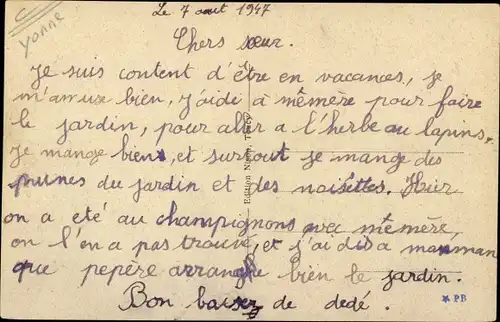 Yonne
Le 7 aout 1947
Chers sœur.
Je suis content d'être en vacances, je
m'amuse bien, j'aide à mêmère pour faire
le jardin, pour aller a l'herbe au lapins,
je mange biens, et surtout je mange des
prunes du jardin et des noisettes. Hier
on a été au champignons avec mêmère,
on l'en a pas trouvé, et j'ai dit a manman
que pepère arranghe bien le jardin.
Bon baiser de dedé.
Edition Nioré, Toucy
* PB